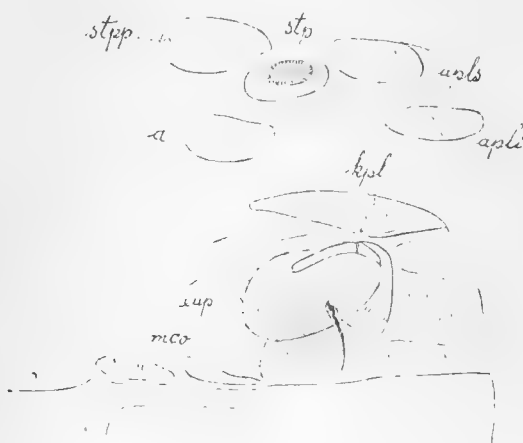 stpp
stp
apls
a
apli
kpl
mco